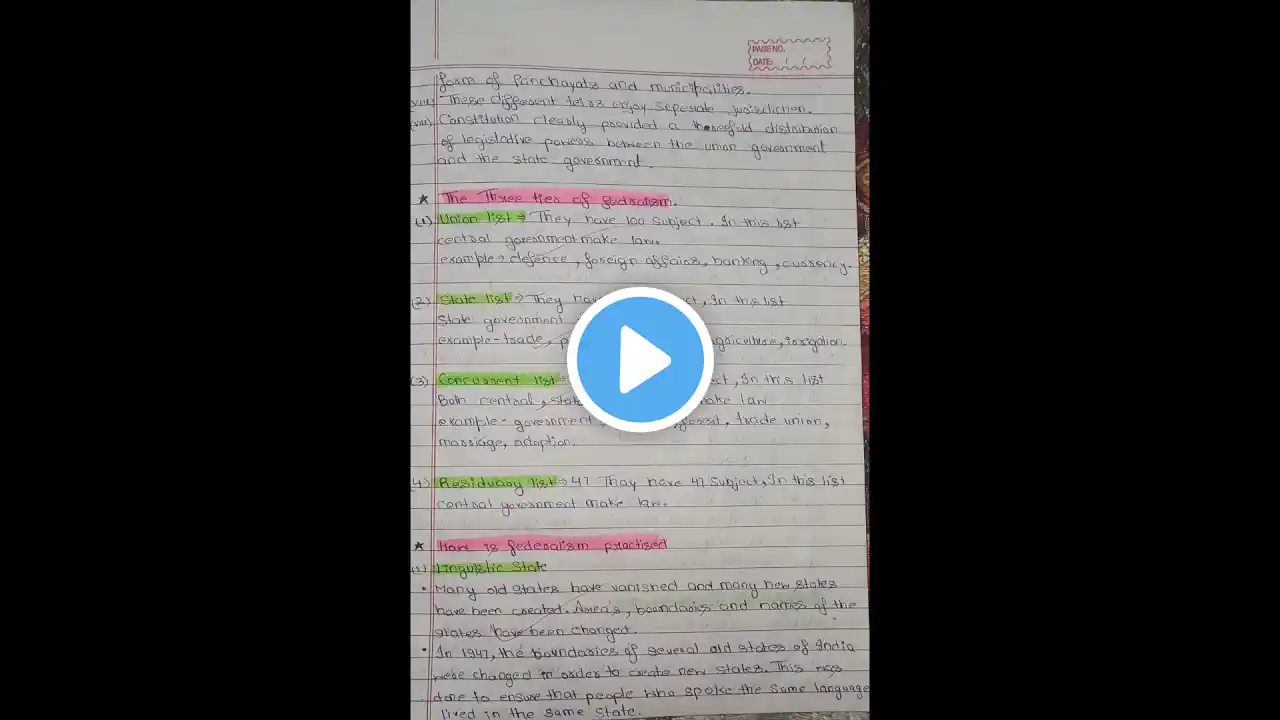 PAGE NO.
DATE: / /
form of Panchayats and municipalities.
(VII) These different teirs enjoy seperate jurisdiction.
(VIII) Constitution clearly provided a threefold distribution
of legislative powers between the union government
and the state government.
★ The Three tier of fedralism.
(1) Union list ⇒ They have 100 subject. In this list
central government make law.
example → defence, foreign affairs, banking, currency.
(2) State list ⇒ They , In this list
State government
example - trade, agriculture, irrigation.
(3) Concurrent list ⇒ , In this list
Both central, make law
example - government , trade union,
marriage, adoption.
(4) Residuary list ⇒ 47 They have 47 subject, In this list
central government make law.
★ How is federalism practised
(1) Linguistic State
• Many old states have vanished and many new states
have been created. Area's, boundaries and names of the
states have been changed.
• In 1947, the boundaries of several old states of India
were changed in order to create new states. This was
done to ensure that people who spoke the same language
lived in the same State.